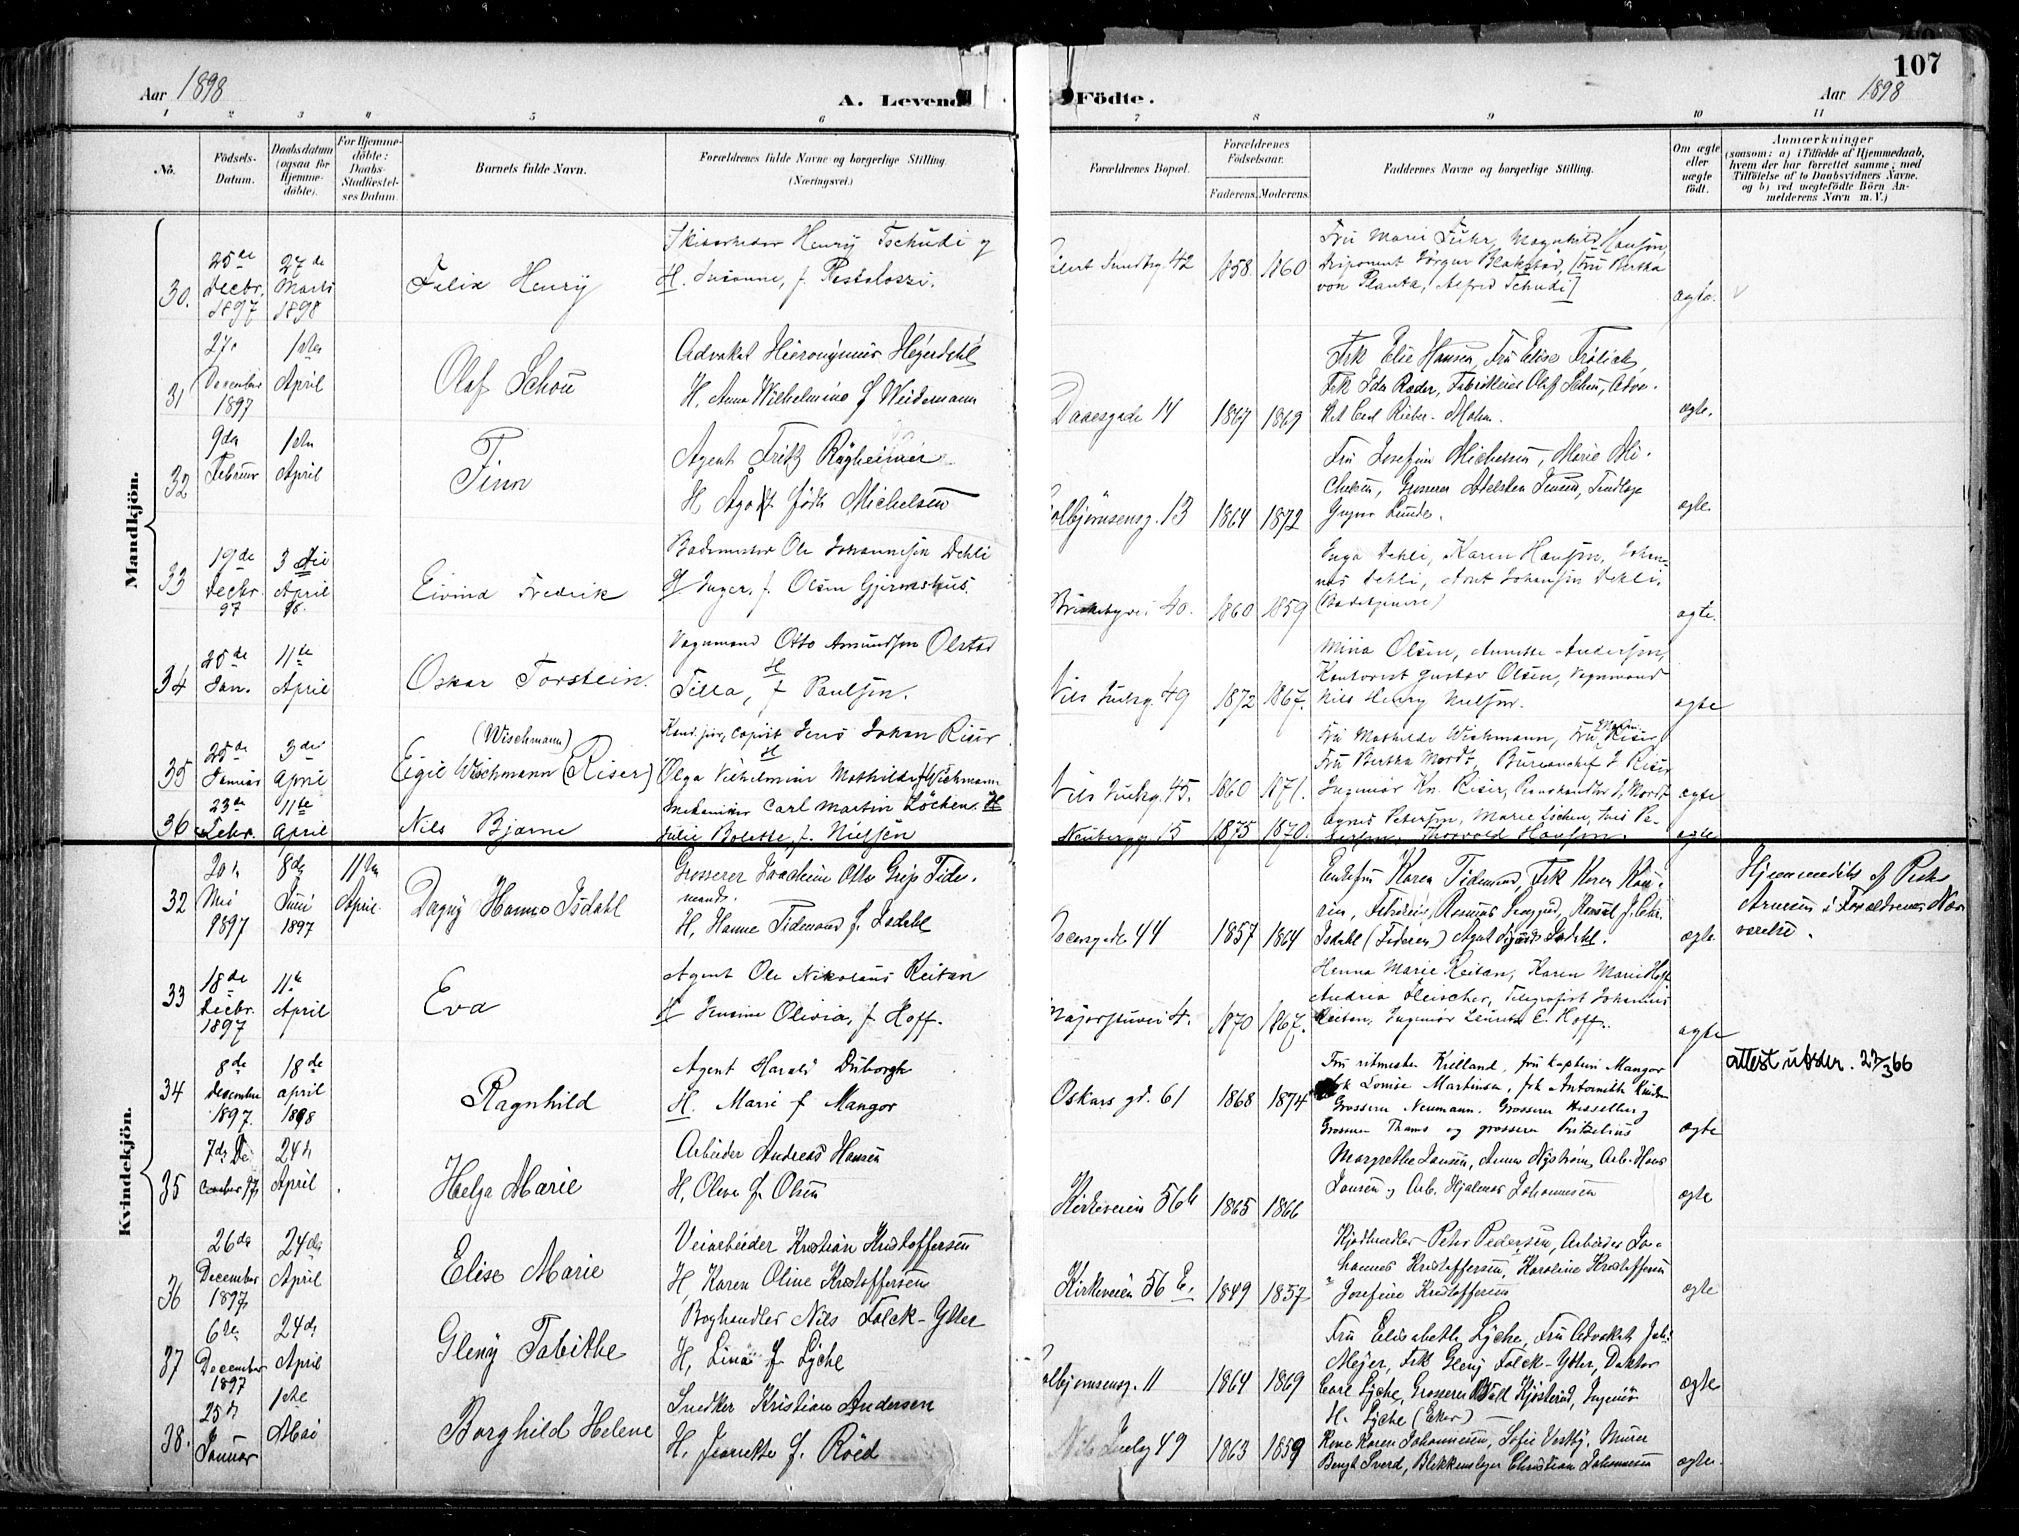 107
Aar 1898
A. Levende Födte.
Aar 1898
1 2 3 4 5 6 7 8 9 10 11
No.
Födsels-Datum.
Daabsdatum (ogsaa för Hjemmedöbte).
For Hjemmedöbte: Daabs-Stadfæstelses Datum.
Barnets fulde Navn.
Forældrenes fulde Navne og borgerlige Stilling. (Næringsvei.)
Forældrenes Bopæl.
Forældrenes Födselsaar.
Faderens. Moderens.
Faddernes Navne og borgerlige Stilling.
Om ægte eller uægte födt.
Anmærkninger
(saasom: a) i Tilfælde af Hjemmedaab, hvem der har forrettet samme, med Tilföielse af to Daabsvidners Navne. og b) ved uegtefödte Börn Anmelderens Navn m. V.)
Mandkjön.
30.
25de Decbr. 1897
27de Marts 1898
Felix Henry
Henry Tschudi og
H. Susanne, f. Pestalozzi.
Eilert Sundtsg. 42
1858 1860
Fru Marie Fuhr, Magnhild Hansen,
Disponent Jörgen Blakstad, [Fru Bertha
von Planta, Alfred Tschudi]
ægte.
31
27. December 1897
1ste April
Olaf Schou
Advokat Hieronymus Heyerdahl
H. Anna Wilhelmine f Weidemann
Daaesgade 14
1867 1869
Frk Elie Hansen, Fru Elise Frölich,
Frk Ida Ræder, Fabrikeier Olaf Schou, Advo-
kat Carl Rieber-Mohn.
ægte.
32
9da Februar
1ste April
Finn
Agent Fritz Rögheimer
H Ågot født Michelsen
Colbjörnsensg. 13
1864 1872
Fru Josefine Michelsen, Marie Mi-
chelsen, Grosserer Adelsten Jensen, Tandlæge
Lunde.
ægte.
33
19de Decbr. 97
3die April 98.
Eivind Fredrik
Bademester Ole Johannesen Dehli
H Inger, f. Olsen Gjermshus.
Briskebyvei 40.
1860 1859
Inga Dehli, Karen Hansen, Johan-
nes Dehli, Arnt Johansen Dehli.
(Badetjenere)
ægte.
34
25de Jan.
11te April
Oskar Torstein.
Vognmand Otto Amundsen Olstad
H
Tilla, f Paulsen.
Nils Juelsg. 49
1872 1867.
Mina Olsen, Annette Andersen,
Kontorist Gustav Olsen, Vognmand
Nils Henry Nielsen.
ægte
35
25de Januar
3die April
(Wischmann)
Eigil Wischmann (Riser)
Kand. jur., Copist Jens Johan Riser
H
Olga Vilhelmine Mathilde f. Wischmann
Nils Juelsg. 45.
1860 1871.
Fru Mathilde Wischmann, Fru Riser
Fru Bertha Mordt, Bureauchef J. Riser
Ingeniør Kn. Riser, J. Mordt
ægte
36
23de Febr.
11te April
Nils Bjarne
Mekaniker Carl Martin Löchen. H
Julie Bolette, f. Nielsen
Neubergg. 15
1875 1870.
Agnes Petersen, Marie Löchen,
Thorvald Hansen.
ægte
Kvindekjön.
32
Mai 1897
8de Juni 1897
11te April
Dagny Hanna Isdahl
Grosserer Joachim Otto Grip Tide-
mand.
H. Hanne Tidemand f. Isdahl
44
1857 1864
Enkefru Karen Tidemand, Frk Karen
Konsul J. Chr.
Isdahl (Faderen) Agent Isdahl.
ægte
Hjemmedöbt af Peter
Arnesen i Forældrenes Nær
værelse.
33
18de Decbr. 1897
11te April
Eva
Agent Ole Nikolaus Reitan
H Jensine Olivia, f. Hoff.
Majorstuvei 4.
1870 1867.
Henna Marie Reitan, Karen Marie Hoff,
Andrea Fleischer, Telegrafist Johannes
Reitan, Ingeniør E. Hoff.
ægte
34
8de December 1897.
18de april 1898
Ragnhild
Agent Harald Duborgh
H. Marie f Mangor
Oskars gd. 61
1868 1874
Fru ritmester Kielland, fru kaptein Mangor
frk Louise Martinsen, frk Antoinette
Grosserer Neumann. Grosserer Hesselberg
Grosserer Thams og grosserer Pritzelius
ægte
attest utsder. 27/3 66
35
7de December 97
24de April
Helga Marie
Arbeider Andreas Hansen
H. Oleva f. Olsen
Kirkeveien 56 b
1865 1866
Margrethe Jansen, Anna Nyström, Arb. Hans
Jansen og Arb. Hjalmar Johannesen
ægte
36
26de December 1897
24de April
Elise Marie
Veiarbeider Kristian Kristoffersen
H. Karen Oline Kristoffersen
Kirkeveien 56 E.
1849 1857
Kjødhandler Peter Pedersen, Arbeider Jo-
hannes Kristoffersen, Karoline Kristoffersen
" Josefine Kristoffersen
ægte
37
6te December 1897
24de April
Gleny Tabithe
Boghandler Nils Falck-Ytter
H. Lina f. Lyche
Colbjørnsensg. 11
1864 1869
Fru Elisabeth Lyche, Fru Advokat Joh.
Mejer, Frk Gleny Falck-Ytter, Doktor
Carl Lyche, Grosserer Kjølstad, Ingeniør
H. Lyche (Eker)
ægte
38.
25de Januar
1ste Mai
Borghild Helene
Snedker Kristian Andersen
H. Jeanette f. Röed
Nils Juelsg 49
1863 1859
Karen Johannesen, Sofie Vestby, Murer
Bengt Sverd, Blikkenslager Christian Johannesen
ægte.